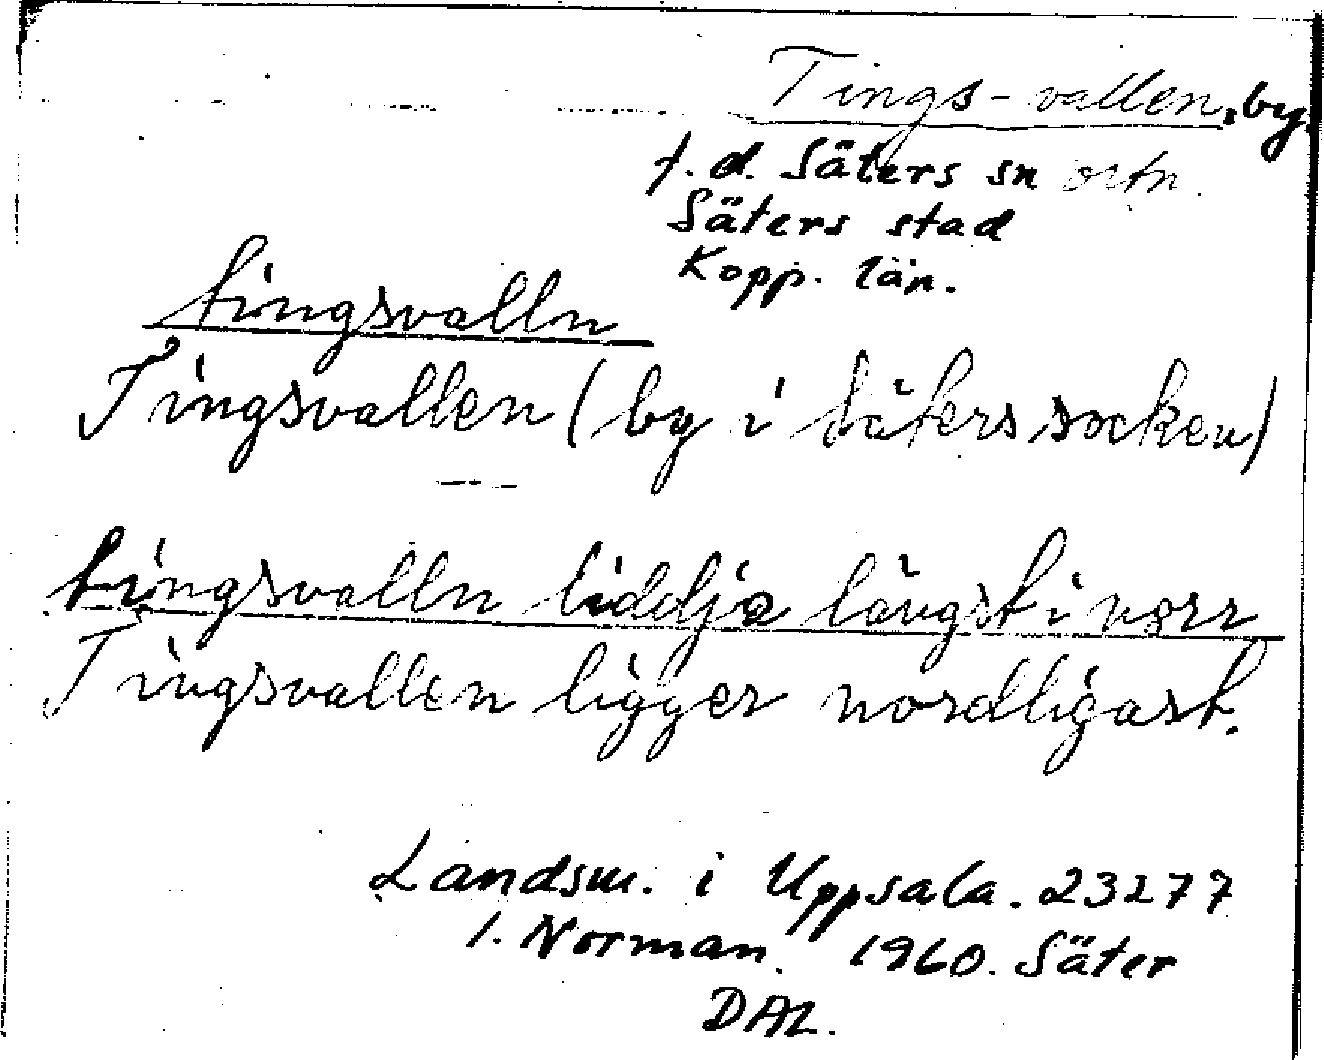 Tings-vallen, by.
f. d. Säters sn ortn.
Säters stad
Kopp. län.
tingsvalln
Tingsvallen (by i Säters socken)
tingsvalln liddja längst i norr
Tingsvallen ligger nordligast.
Landsm. i Uppsala. 23277
I. Norman. 1960. Säter
DAL.